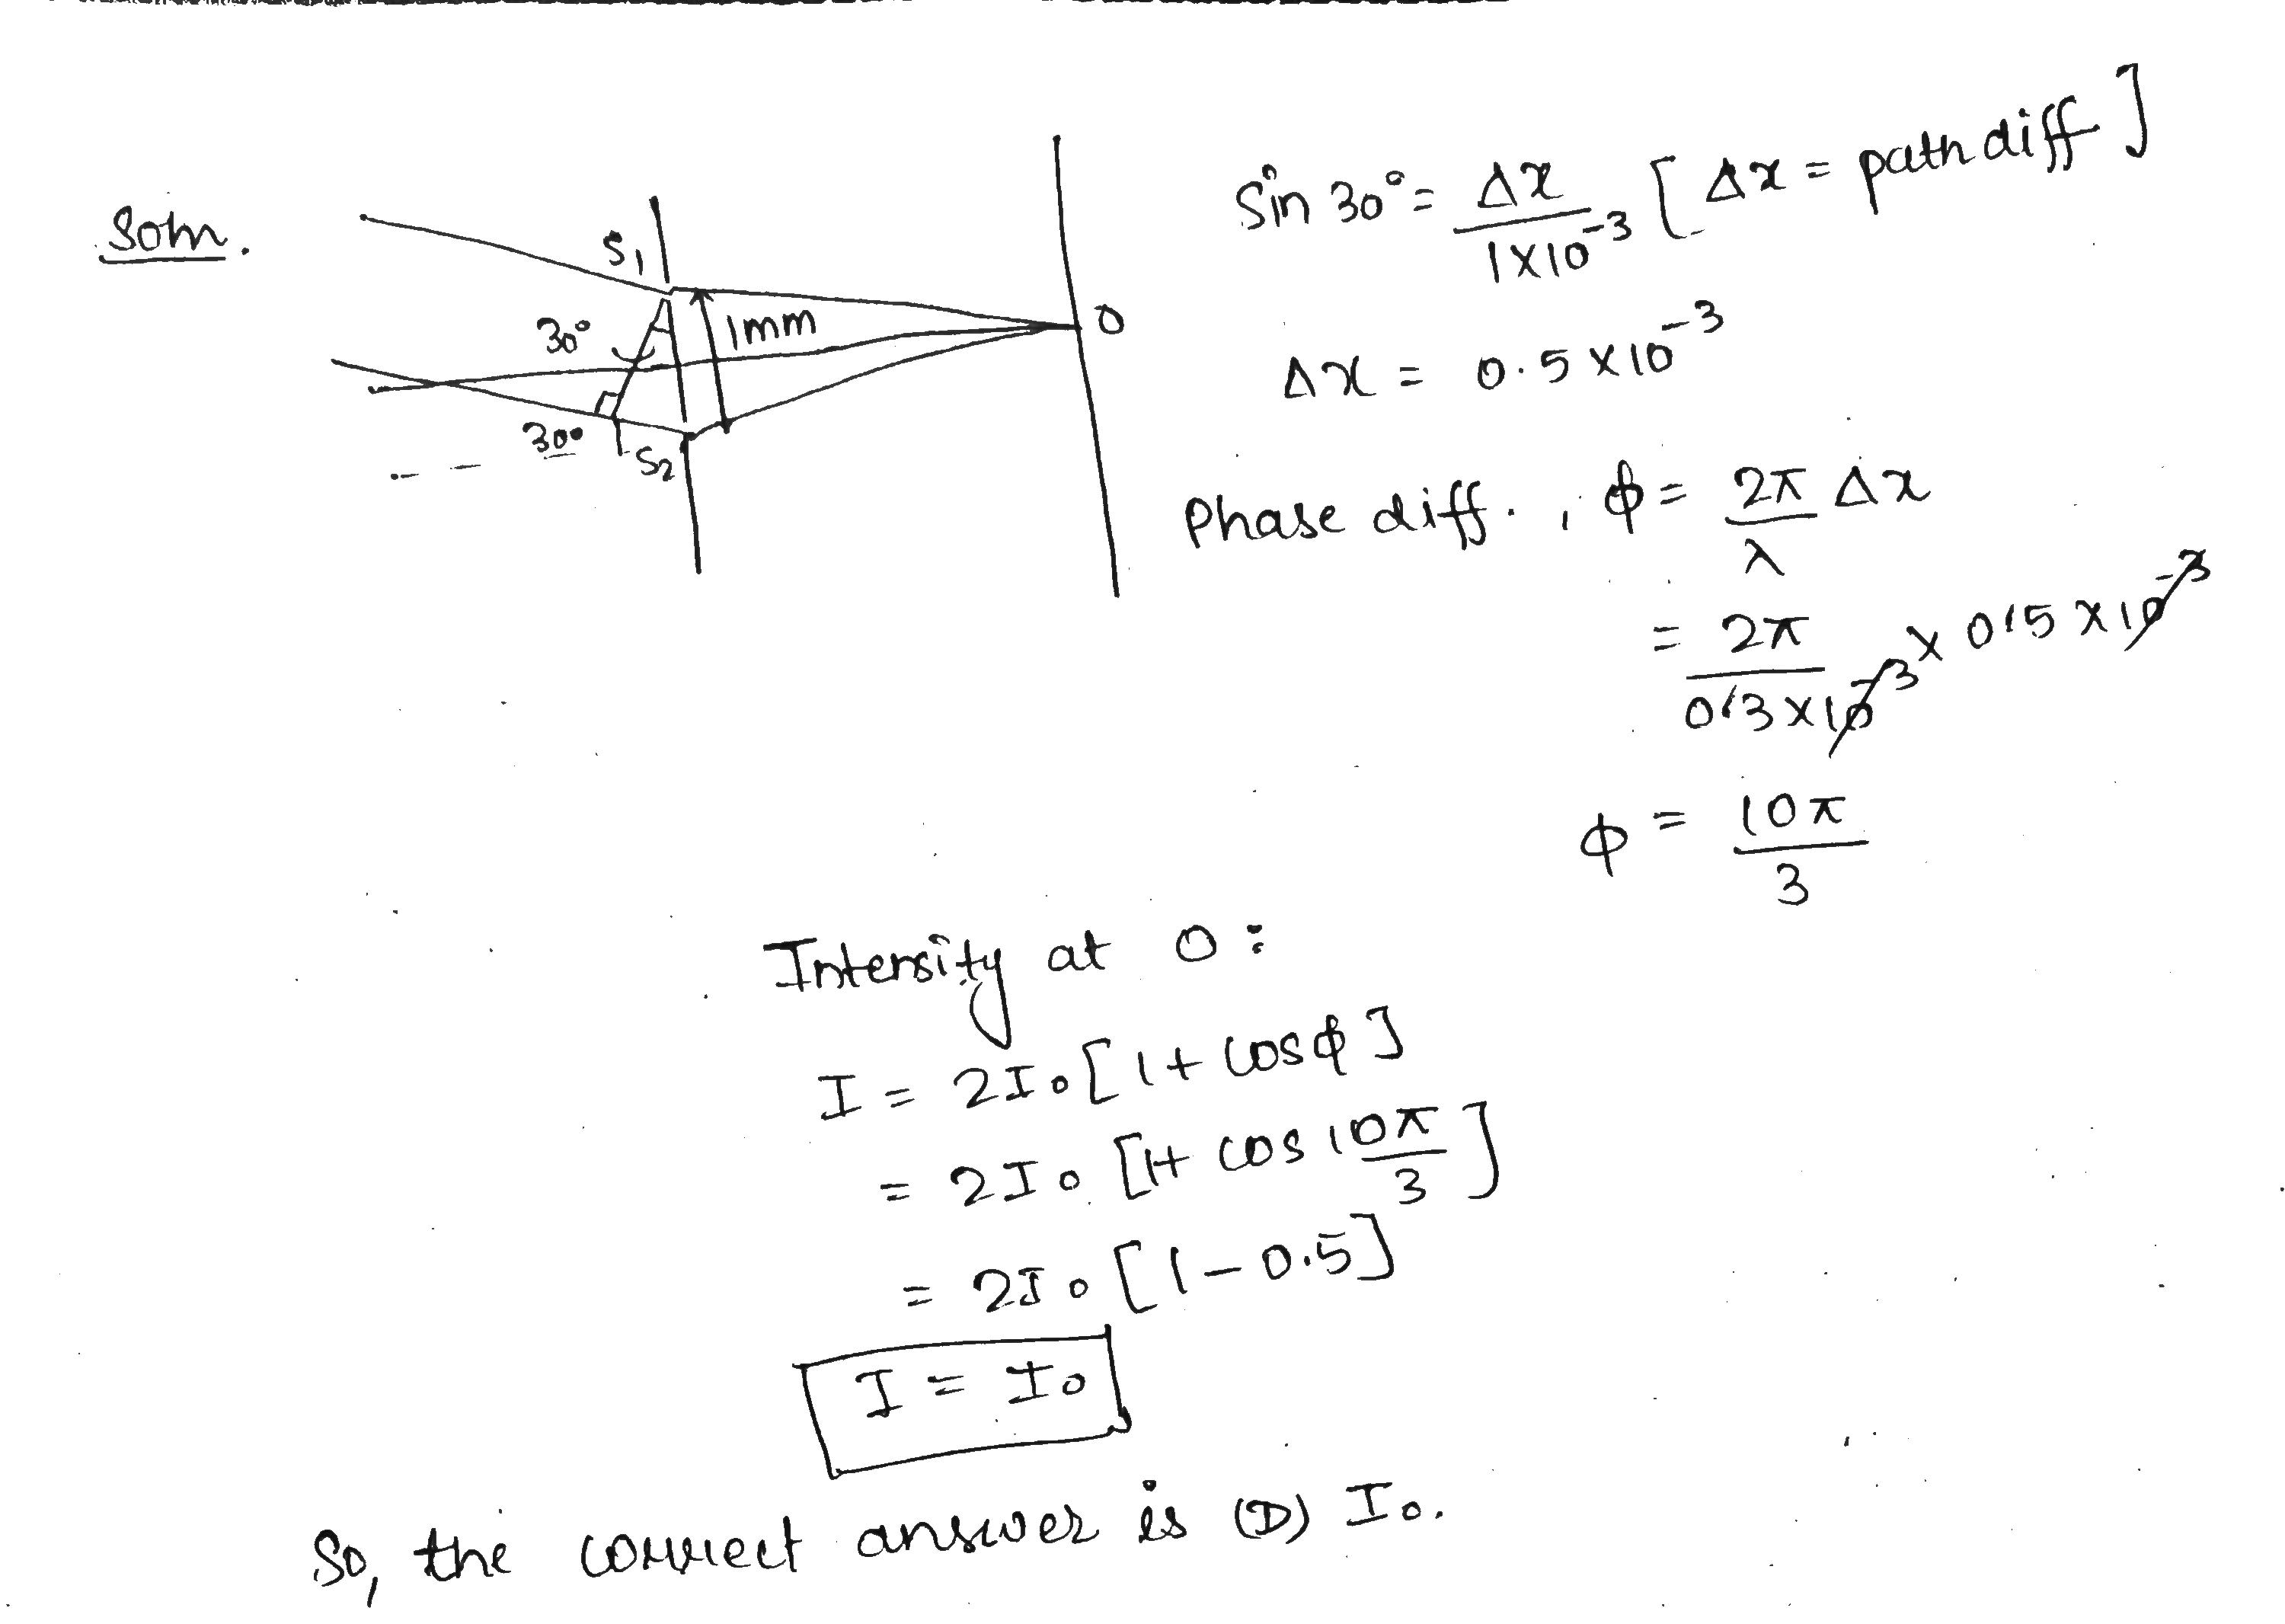 Soln.
S1
30°
1mm
O
30°
S2
Sin 30° = Δx / 1×10^-3 [Δx = path diff]
Δx = 0.5 × 10^-3
Phase diff., ϕ = 2π/λ Δx
= 2π / 0.3×10^-3 × 0.5 × 10^-3
ϕ = 10π/3
Intensity at O :
I = 2I0 [1 + cosϕ]
= 2I0 [1 + cos 10π/3]
= 2I0 [1 - 0.5]
I = I0
So, the correct answer is (D) I0.